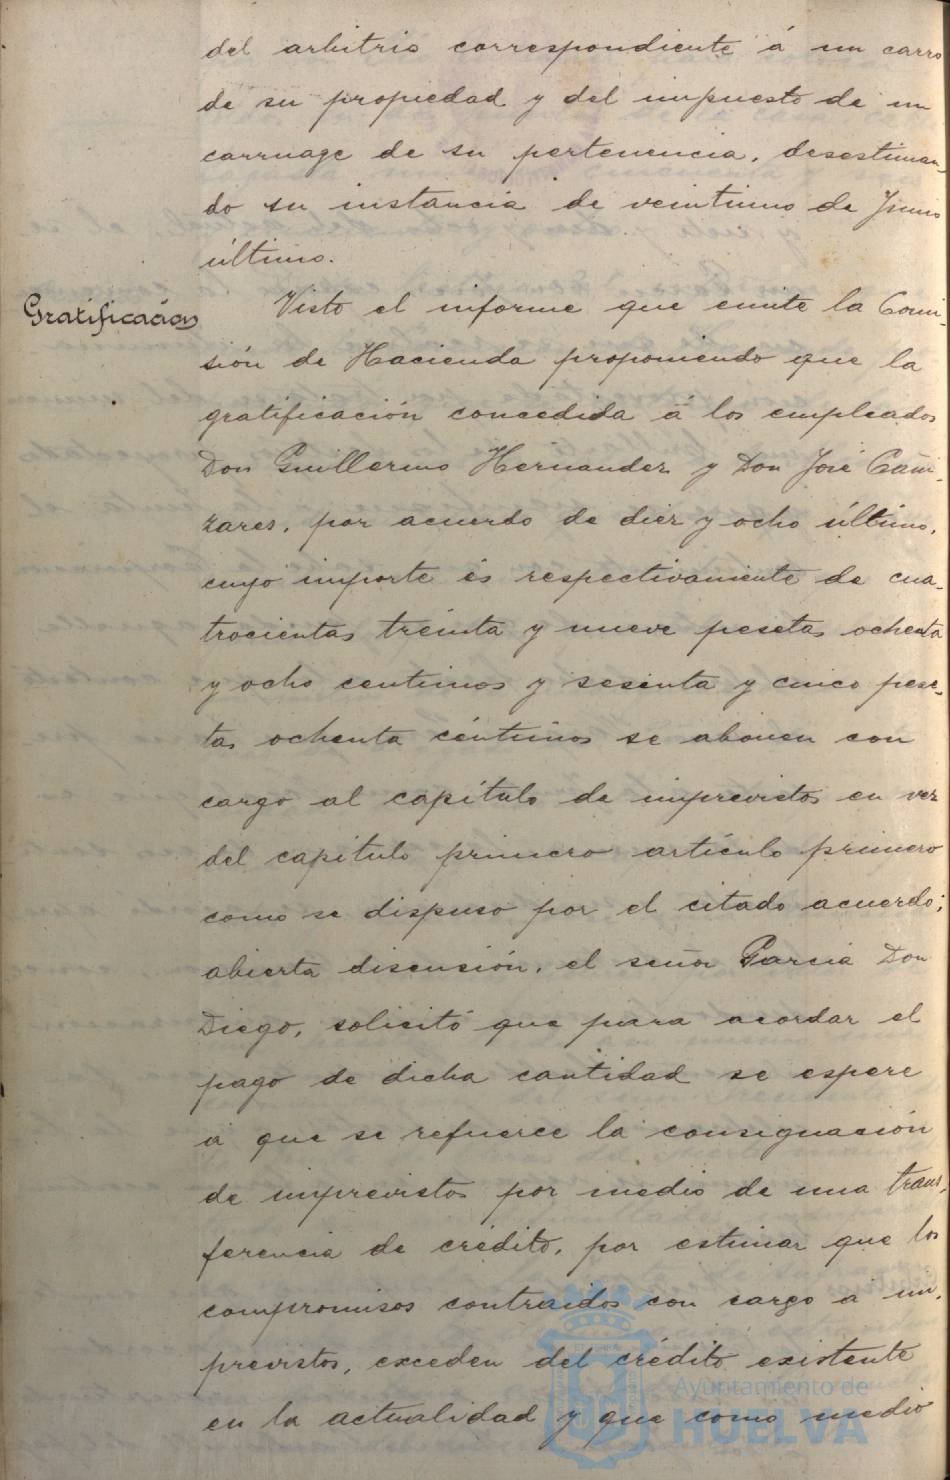 del arbitrio correspondiente á un carro
de su propiedad y del impuesto de un
carruage de su pertenencia, desestiman-
do su instancia de veintiuno de Junio
último.
Gratificación
Visto el informe que emite la Comi-
sión de Hacienda proponiendo que la
gratificación concedida á los empleados
Don Guillermo Hernandez y Don José Cañi-
zares, por acuerdo de diez y ocho último,
cuyo importe és respectivamente de cua-
trocientas treinta y nueve pesetas ochenta
y ocho centimos y sesenta y cinco pese-
tas ochenta céntimos se abonen con
cargo al capítulo de imprevistos en vez
del capítulo primero artículo primero
como se dispuso por el citado acuerdo;
abierta discusión, el señor García Don
Diego, solicitó que para acordar el
pago de dicha cantidad se espere
a que se refuerce la consignación
de imprevistos por medio de una trans-
ferencia de crédito, por estimar que los
compromisos contraidos con cargo a im-
previstos, exceden del crédito existente
en la actualidad y que como medio
Ayuntamiento de
HUELVA